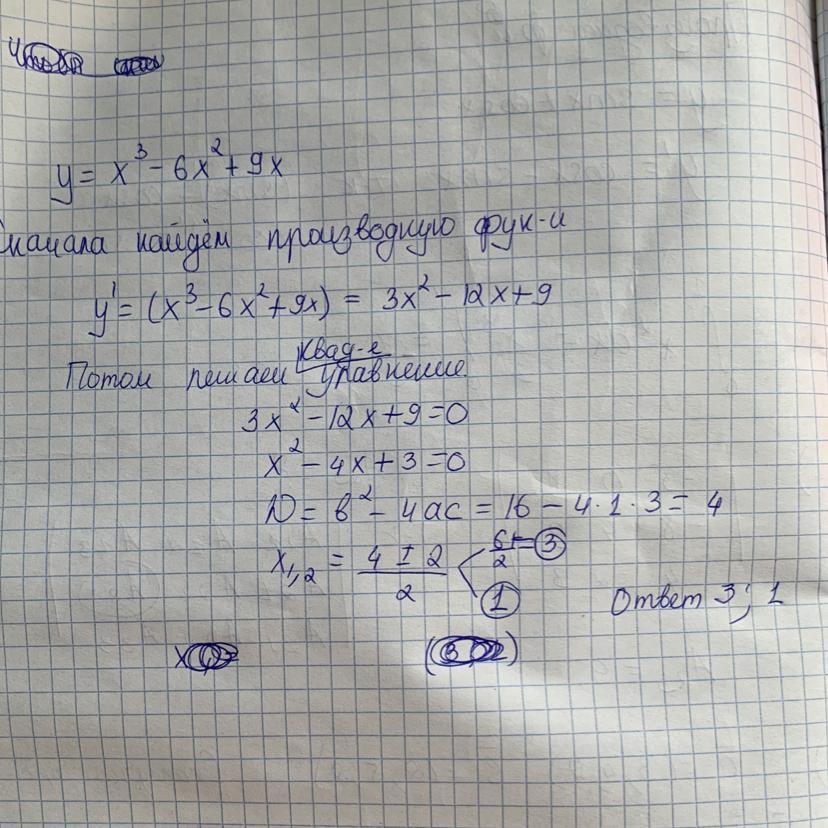 y = x³ - 6x² + 9x
начала найдём производную фук-и
y' = (x³-6x²+9x) = 3x² - 12x + 9
Потом решаем квад-е уравнение.
3x² - 12x + 9 = 0
x² - 4x + 3 = 0
D = b² - 4ac = 16 - 4·1·3 = 4
x₁,₂ = (4 ± 2)/2 < 6/2 = 3
1
Ответ 3; 1